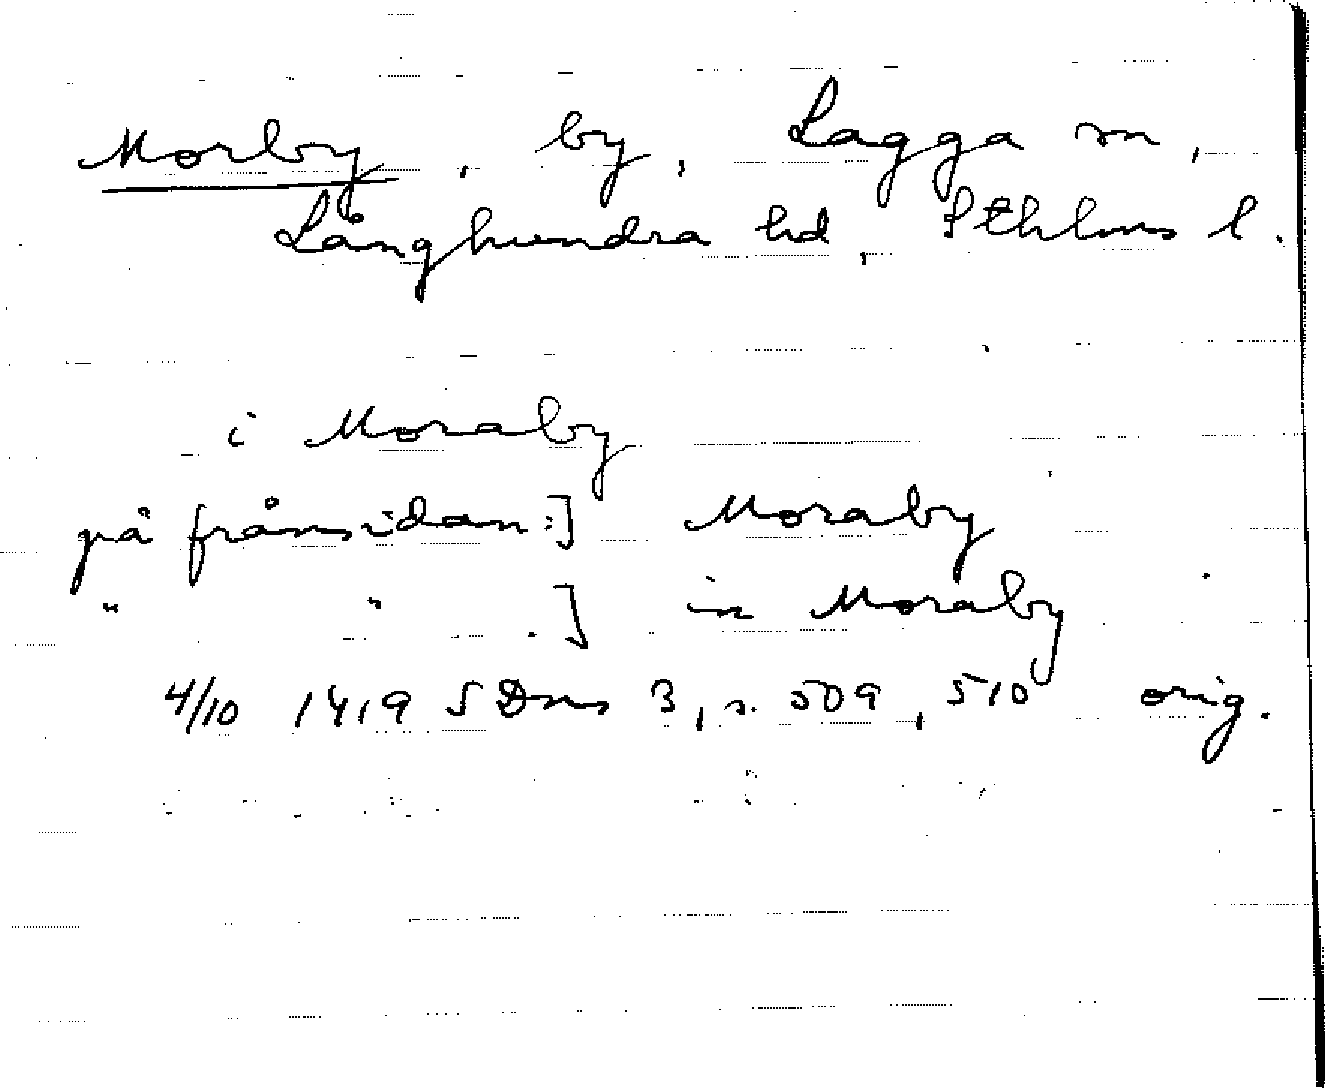 Morby, by, Lagga sn,
Långhundra hd, Sthlms l.
i Moraby
på frånsidan:] Moraby
" " .] in Moraby
4/10 1419 SDns 3, s. 509, 510 orig.